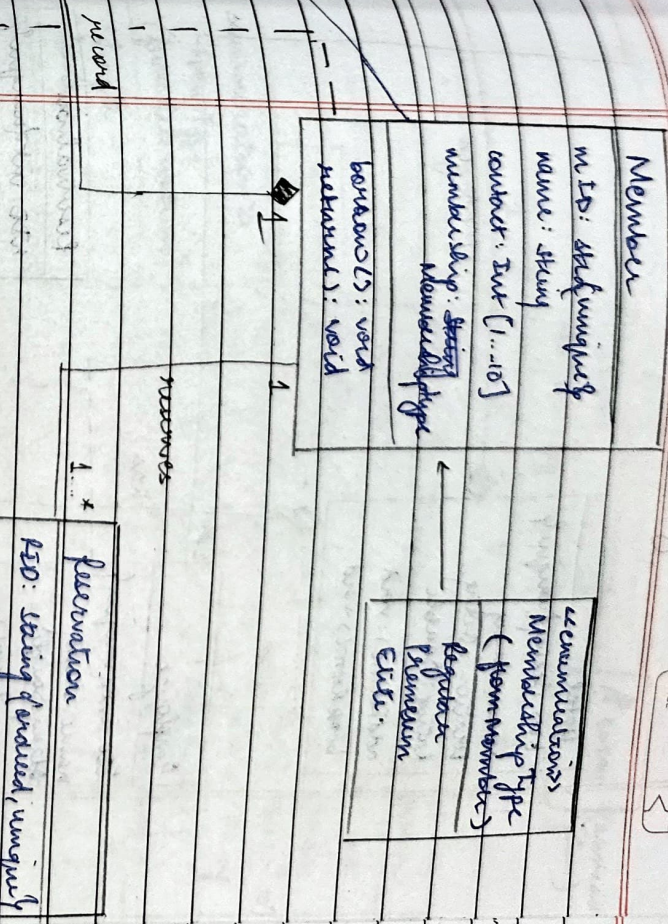 Member
mID: std{unique}
name: string
contact: Int [1...10]
membership: string
MembershipType
borrow(): void
return(): void
<<enumeration>>
MembershipType
(from member)
Regular
Premium
Elite.
1
1
record
reserves
1...*
Reservation
RID: string {ordered, unique}